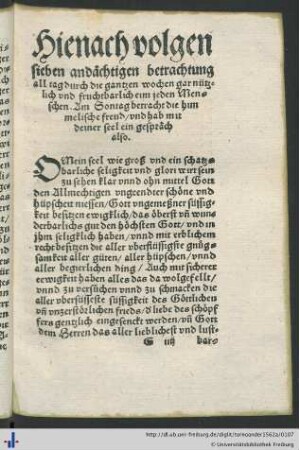 Hienach volgen
sieben andächtigen betrachtung
all tag durch die gantzen wochen gar nütz-
lich vnd fruchtbarlich eim yeden Men-
schen. Am Sontag betracht die hym
melische freud/vnd hab mit
deiner seel ein gespräch
also.
O Mein seel wie groß vnd ein schatz-
barliche seligkeit vnd glori wirt sein
zu sehen klar vnnd ohn mittel Gott
den Allmechtigen vngeendter schöne vnd
hüpschen niessen/Gott vngemeßner süssig-
keit besitzen ewigklich/das öberst vñ wun-
derbarlichs gut den höchsten Gott/vnd in
jhm seligklich haben/vnnd mit erblichem
recht besitzen die aller vberflüssigste gnüg-
samkeit aller güter/aller hüpschen/vnnd
aller begierlichen ding/Auch mit sicherer
eewigkeit haben alles das da wolgefelt/
vnnd zu versuchen vnnd zu schmacken die
aller vbersüsseste süssigkeit des Göttlichen
vñ vnzerstörlichen frieds/d liebe des schöpf
fers gentzlich eingesenckt werden/vñ Gott
dem Herren das aller lieblichest vnd lust-
G iiij bar-
http://dl.ub.uni-freiburg.de/diglit/horreoander1562a/0107
© Universitätsbibliothek Freiburg